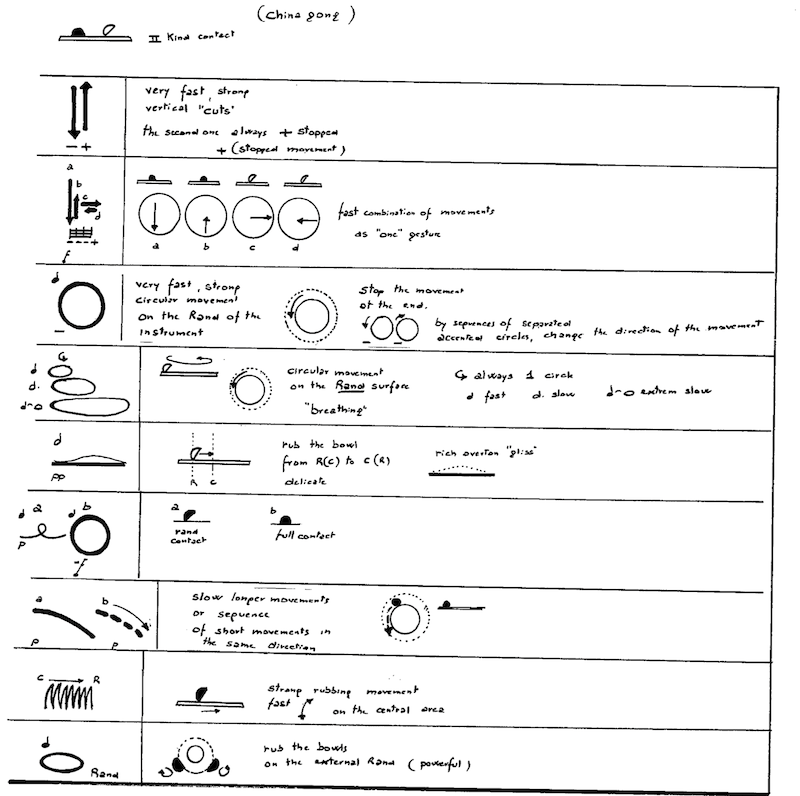 (china gong)
II Kind contact
very fast, strong
vertical "cuts"
the second one always + stopped
+ (stopped movement)
- +
a
b
c
d
- - - +
f
a b c d
fast combination of movements
as "one" gesture
very fast, strong
circular movement
on the Rand of the
instrument
-
stop the movement
at the end.
- -
by sequences of separated
accented circles, change the direction of the movement
circular movement
on the Rand surface
"breathing"
always 1 circle
fast slow extrem slow
pp
R C
rub the bowl
from R(C) to C(R)
delicate
rich overton "gliss"
a b
p
-f
a
rand
contact
b
full contact
a b
p p
slow longer movements
or sequence
of short movements in
the same direction
C R
strong rubbing movement
fast on the central area
Rand
rub the bowls
on the external Rand (powerful)